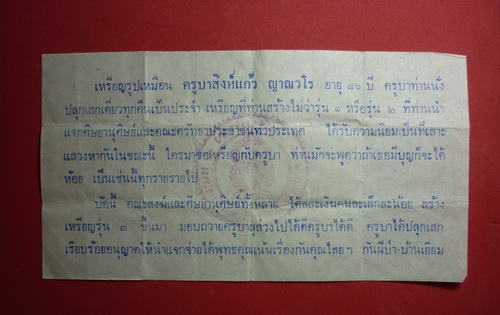 เหรียญรูปเหมือน ครูบาสิงห์แก้ว ญาณวโร อายุ ๘๖ ปี ครูบาท่านนั่ง
ปลุกเสกเดี่ยวทุกคืนเป็นประจำ เหรียญที่ท่านสร้างไม่ว่ารุ่น ๑ หรือรุ่น ๒ ที่ท่านนำ
แจกศิษยานุศิษย์และคณะศรัทธาประชาชนทั่วประเทศ ได้รับความนิยมเป็นที่เสาะ
แสวงหากันในขณะนี้ ใครมาขอเหรียญกับครูบา ท่านมักจะพูดว่าถ้าเธอมีบุญก็จะได้
ห้อย เป็นเช่นนี้ทุกรายรายไป
บัดนี้ คณะสงฆ์และศิษยานุศิษย์ทั้งหลาย ได้สละเงินคนละเล็กละน้อย สร้าง
เหรียญรุ่น ๓ ขึ้นมา มอบถวายครูบาลุล่วงไปได้ดีครูบาได้ดี ครูบาได้ปลุกเสก
เรียบร้อยอนุญาตให้นำแจกจ่ายได้พุทธคุณเน้นเรื่องกันคุณไสยฯ กันผีป่า-บ้านเยี่ยม